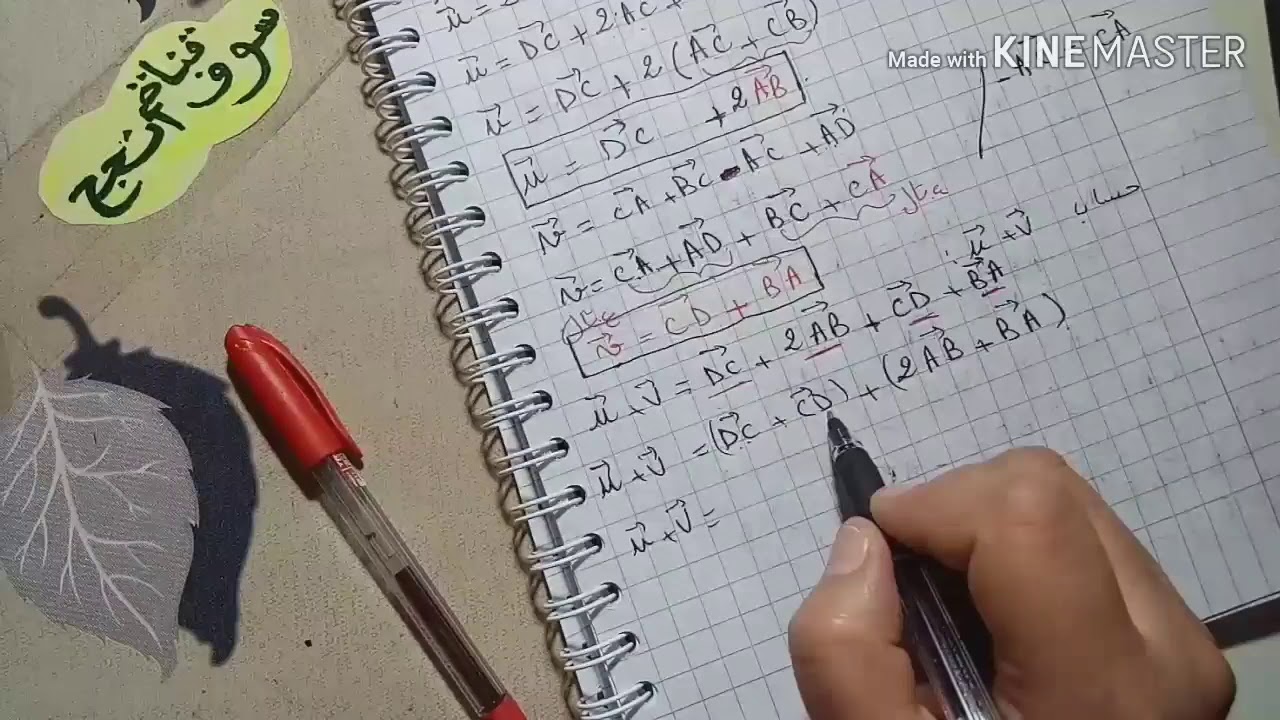 سوف
تناضل
تنجح
Made with KINEMASTER
u⃗ = DC⃗ + 2AC⃗ +
u⃗ = DC⃗ + 2(AC⃗ + CB⃗)
u⃗ = DC⃗ + 2AB⃗
v⃗ = CA⃗ + BC⃗ - AC⃗ + AD⃗
v⃗ = CA⃗ + AD⃗ + BC⃗ + CA⃗
v⃗ = CD⃗ + BA⃗
حساب u⃗ + v⃗ :
u⃗ + v⃗ = DC⃗ + 2AB⃗ + CD⃗ + BA⃗
u⃗ + v⃗ = (DC⃗ + CD⃗) + (2AB⃗ + BA⃗)
u⃗ + v⃗ =
CA⃗